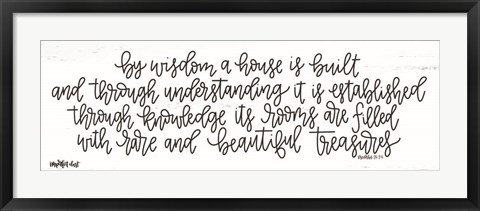 by wisdom a house is built
and through understanding it is established
through knowledge its rooms are filled
with rare and beautiful treasures